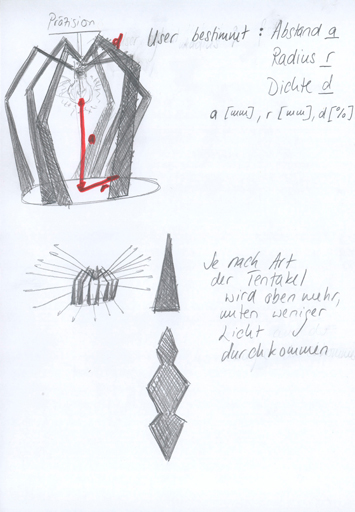 Präzision
d
User bestimmt : Abstand a
Radius r
Dichte d
a [mm], r [mm], d [%]
a
r
Je nach Art
der Tentakel
wird oben mehr,
unten weniger
Licht
durchkommen